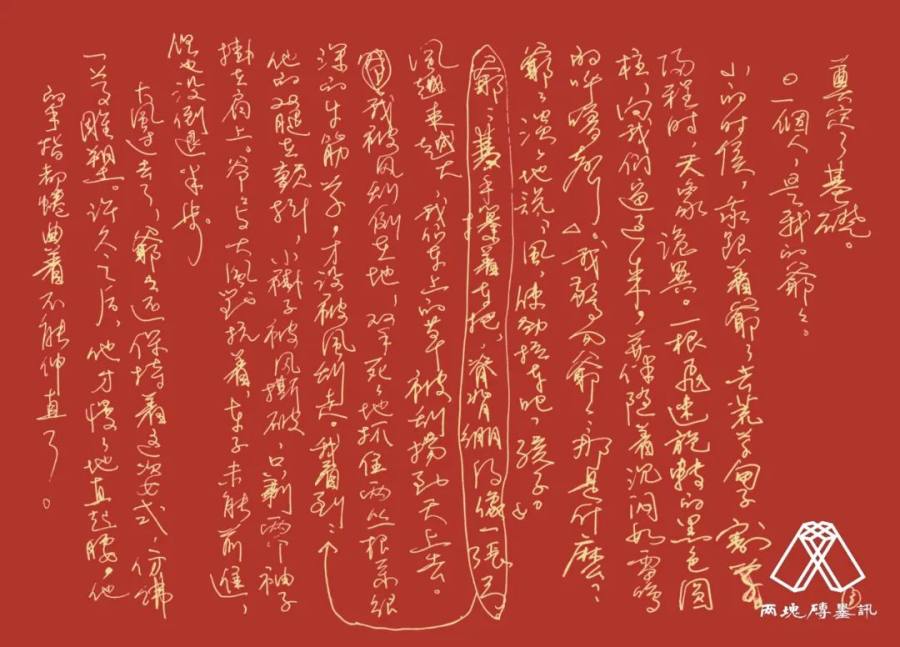 奠定了基礎。
〇一個人,是我的爺爺。
小的時候,我跟着爺爺去荒草甸子割草
歸程時,天象詭異。一根飛速旋轉的黑色圓
柱,向我們逼過來,并伴隨着沉悶如雷鳴
的呼嚕聲。我驚問爺爺:那是什麼?
爺爺淡淡地說,風,使勁拉車吧,孩子。
爺爺雙手攥着車把,脊背綳得像一張弓。
風越來越大,我們車上的草被刮揚到天上去。
我被風刮倒在地,雙手死死地抓住兩叢根系很
深的牛筋草,才沒被風刮走。我看到:
他的双腿在顫抖,小褂子被風撕破,只剩兩個袖子
掛在肩上。爷爷與大風對抗着,車子未能前進,
但也沒倒退半步。
大風過去了,爺爺還保持着這姿式,仿佛
一尊雕塑。許久之后,他才慢慢地直起腰,他
的手指都蜷曲着不能伸直了。
兩塊磚墨訊